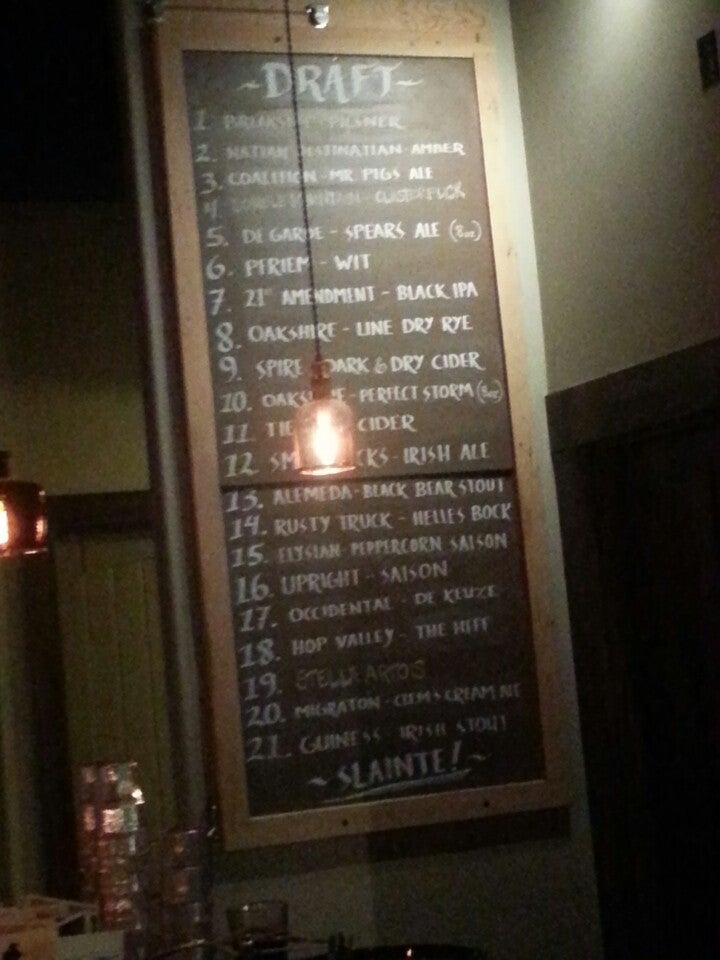 ~DRÁFT~
1. PILSNER
2. DESTINATIAN AMBER
3. COALITION - MR PIGS ALE
4. - CLUSTERFUCK
5. DE GARDE - SPEARS ALE (8oz)
6. PERIEM - WIT
7. 21ST AMENDMENT - BLACK IPA
8. OAKSHIRE - LINE DRY RYE
9. SPIRE DARK & DRY CIDER
10. - PERFECT STORM (8oz)
11. CIDER
12 - IRISH ALE
13. ALEMEDA - BLACK BEAR STOUT
14. RUSTY TRUCK - HELLES BOCK
15. ELYSIAN PEPPERCORN SAISON
16. UPRIGHT - SAISON
17. OCCIDENTAL - DE KEUZE
18. HOP VALLEY - THE HEFF
19. STELLA ARTOIS
20. MIGRATON - CLEM'S CREAM ALE
21. GUINESS IRISH STOUT
~SLAINTE!~